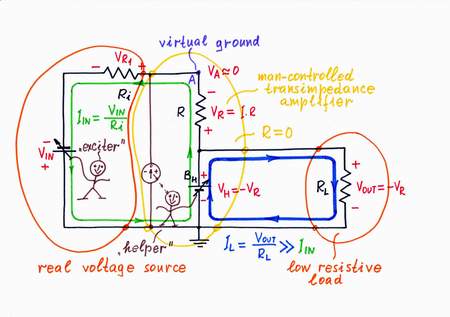 virtual ground
VRi
VA≈0
A
man-controlled
transimpedance
amplifier
Ri
R
VR = I.R
IIN = VIN/Ri
R=0
"exciter"
VIN
BH
VH=-VR
RL
VOUT=-VR
"helper"
IL = VOUT/RL >> IIN
real voltage source
low resistive
load